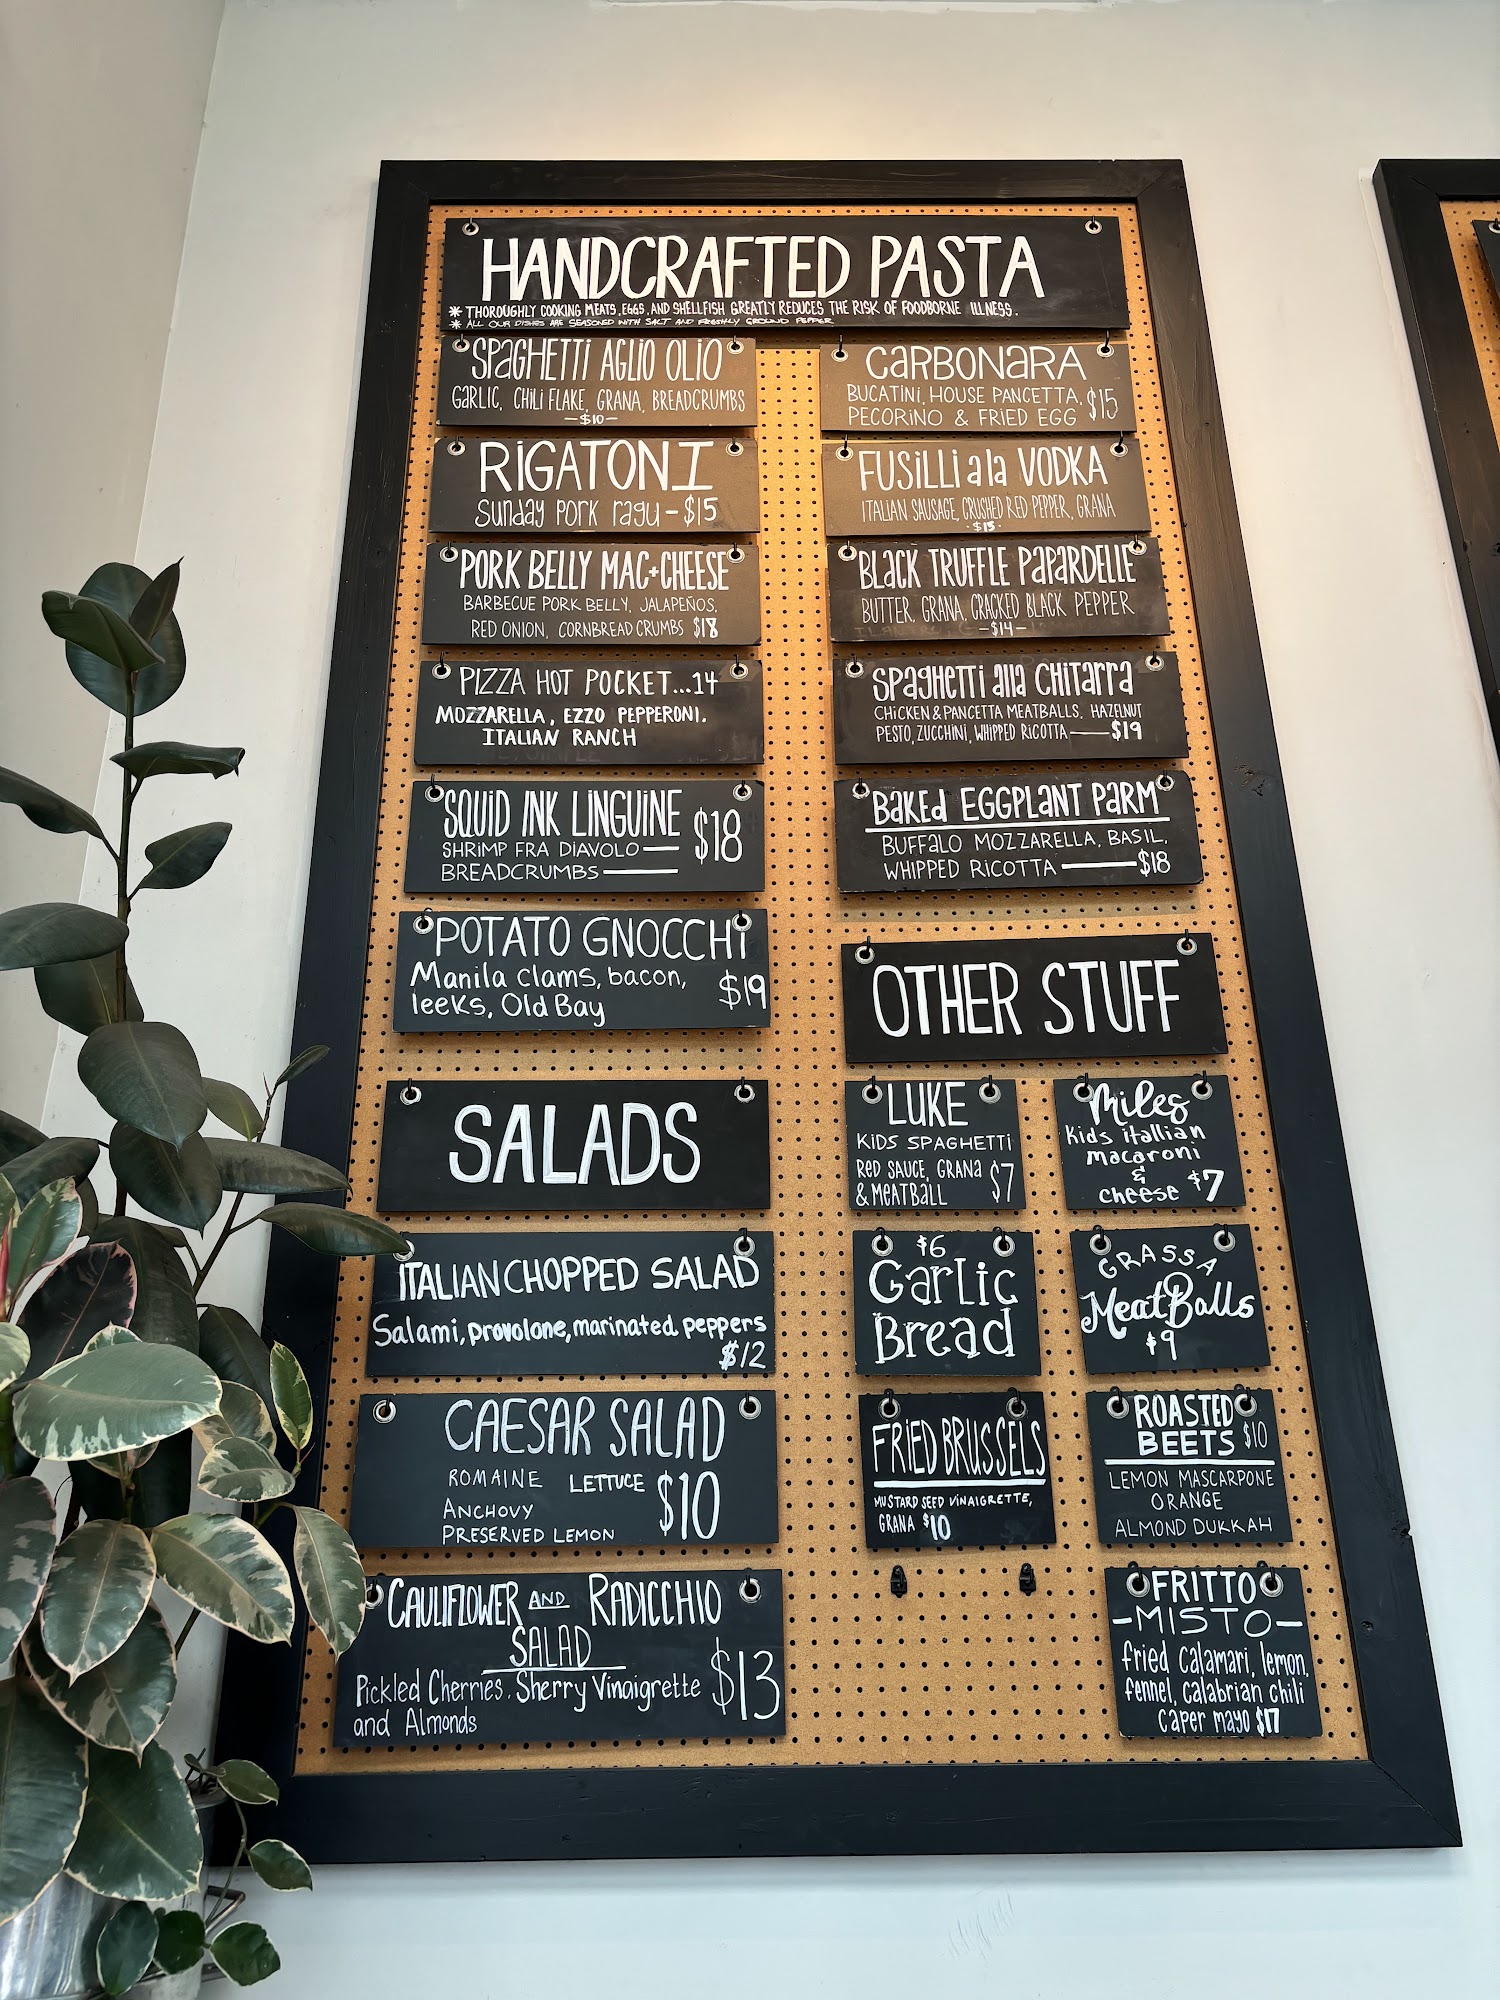 HANDCRAFTED PASTA
* THOROUGHLY COOKING MEATS, EGGS, AND SHELLFISH GREATLY REDUCES THE RISK OF FOODBORNE ILLNESS.
* ALL OUR DISHES ARE SEASONED WITH SALT AND FRESHLY GROUND PEPPER
SPAGHETTI AGLIO OLIO
GARLIC, CHILI FLAKE, GRANA, BREADCRUMBS
-$10-
RIGATONI
Sunday pork ragu - $15
PORK BELLY MAC+CHEESE
BARBECUE PORK BELLY, JALAPEÑOS,
RED ONION, CORNBREAD CRUMBS $18
PIZZA HOT POCKET...14
MOZZARELLA, EZZO PEPPERONI.
ITALIAN RANCH
SQUID INK LINGUINE $18
SHRIMP FRA DIAVOLO —
BREADCRUMBS —
POTATO GNOCCHI
Manila clams, bacon,
leeks, Old Bay $19
CARBONARA
BUCATINI, HOUSE PANCETTA,
PECORINO & FRIED EGG $15
FUSILLI a la VODKA
ITALIAN SAUSAGE, CRUSHED RED PEPPER, GRANA
-$15-
BLACK TRUFFLE PAPARDELLE
BUTTER, GRANA, CRACKED BLACK PEPPER
-$14-
SPAGHETTI alla CHITARRA
CHICKEN & PANCETTA MEATBALLS, HAZELNUT
PESTO, ZUCCHINI, WHIPPED RICOTTA — $19
BAKED EGGPLANT PARM
BUFFALO MOZZARELLA, BASIL,
WHIPPED RICOTTA — $18
SALADS
ITALIAN CHOPPED SALAD
Salami, provolone, marinated peppers
$12
CAESAR SALAD
ROMAINE LETTUCE
ANCHOVY
PRESERVED LEMON $10
CAULIFLOWER AND RADICCHIO
SALAD
Pickled Cherries, Sherry Vinaigrette
and Almonds $13
OTHER STUFF
LUKE
KIDS SPAGHETTI
RED SAUCE, GRANA
& MEATBALL $7
Miles
kids itallian
macaroni
&
cheese $7
$6
Garlic
Bread
GRASSA
MeatBalls
$9
FRIED BRUSSELS
MUSTARD SEED VINAIGRETTE,
GRANA $10
ROASTED
BEETS $10
LEMON MASCARPONE
ORANGE
ALMOND DUKKAH
FRITTO
-MISTO-
fried calamari, lemon,
fennel, calabrian chili
caper mayo $17